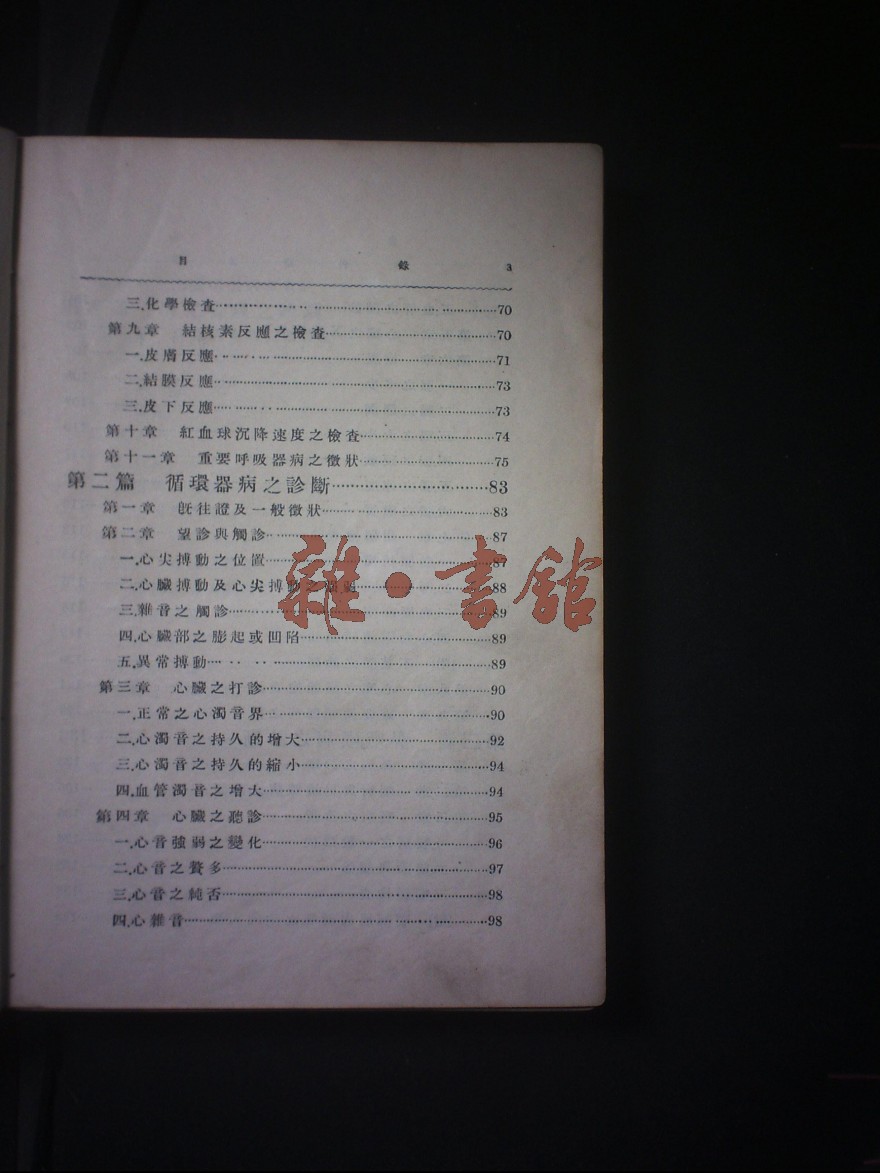 目 錄 3
三.化學檢查 70
第九章 結核素反應之檢查 70
一.皮膚反應 71
二.結膜反應 73
三.皮下反應 73
第十章 紅血球沉降速度之檢查 74
第十一章 重要呼吸器病之徵狀 75
第二篇 循環器病之診斷 83
第一章 旣往證及一般徵狀 83
第二章 望診與觸診 87
一.心尖搏動之位置 87
二.心臟搏動及心尖搏動之强弱 88
三.雜音之觸診 89
四.心臟部之膨起或凹陷 89
五.異常搏動 89
第三章 心臟之打診 90
一.正常之心濁音界 90
二.心濁音之持久的增大 92
三.心濁音之持久的縮小 94
四.血管濁音之增大 94
第四章 心臟之聽診 95
一.心音強弱之變化 96
二.心音之贅多 97
三.心音之純否 98
四.心雜音 98
雜·書館